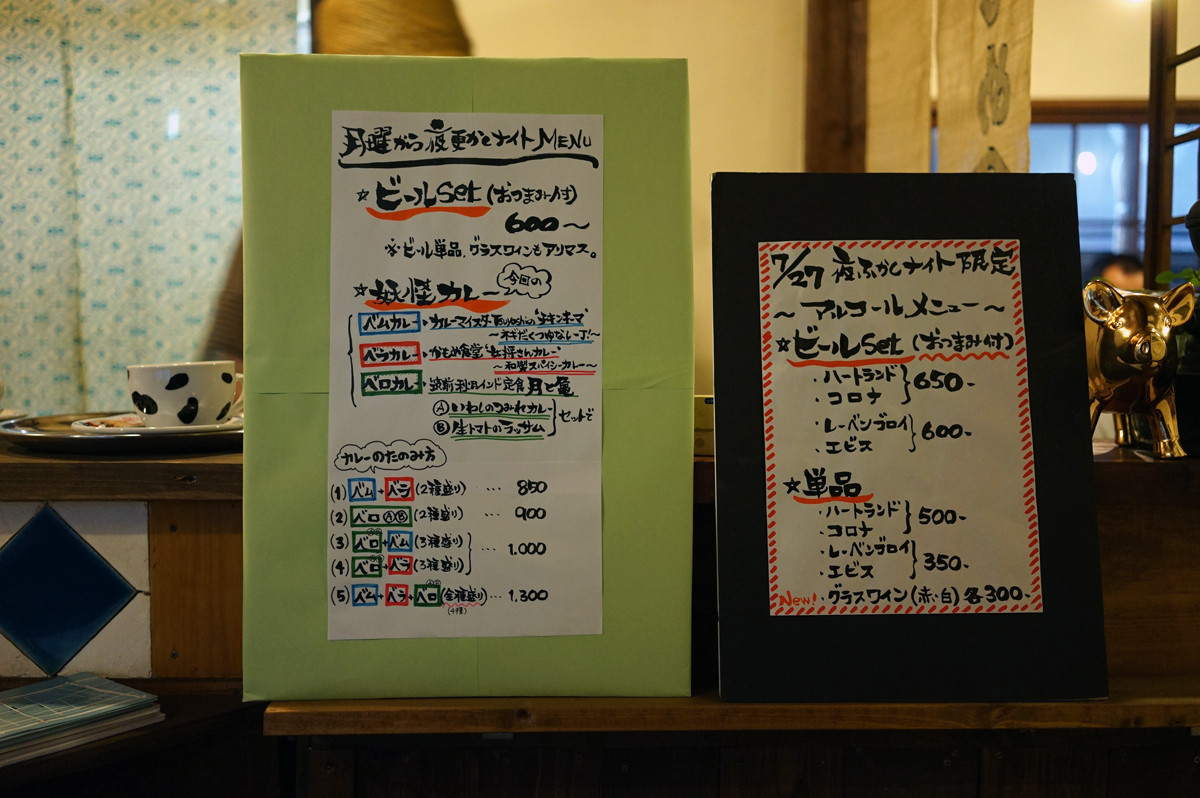 月曜から夜更かしナイトMENU
☆ビールset(おつまみ付)
600〜
※ビール単品、グラスワインもアリマス。
☆妖怪カレー 今回の
ベムカレー・カレーマイスターTsuyoshiの"チキンキーマ"
〜ネギだくつゆなしーJ!〜
ベラカレー・かもめ食堂"女将さんカレー"
〜和製スパイシーカレー〜
ベロカレー・筑前秋月インド定食 月と亀
Ⓐいわしのつみれカレー
Ⓑ生トマトのラッサム
セットで
カレーのたのみ方
(1) ベム+ベラ(2種盛り) … 850
(2) ベロⒶⒷ(2種盛り) 900
(3) ベロⒶⒷ+ベム(3種盛り)
(4) ベロⒶⒷ+ベラ(3種盛り)
… 1.000
(5) ベム+ベラ+ベロⒶⒷ(全種盛り)… 1.300
(4種)
7/27 夜ふかしナイト限定
〜アルコールメニュー〜
☆ビールset(おつまみ付)
・ハートランド
・コロナ
650-
・レーベンブロイ
・エビス
600-
☆単品
・ハートランド
・コロナ
500-
・レーベンブロイ
・エビス
350-
New!・グラスワイン(赤・白)各300-